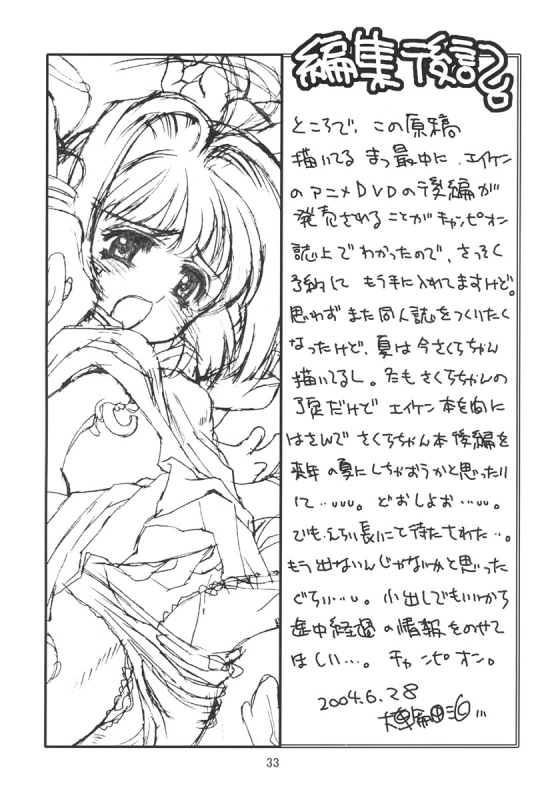 編集後記。
ところで、この原稿
描いてるまっ最中に、エイケン
のアニメDVDの後編が
発売されることがチャンピオン
誌上でわかったので、さっそく
予約して もう手に入れてますけど。
思わずまた同人誌をつくりたく
なったけど、夏は今さくらちゃん
描いてるし。冬もさくらちゃんの
予定だけど エイケン本を間に
はさんで さくらちゃん本後編を
来年の夏にしちゃおうかと思ったり
して…。どおしよお…。
でもえらい長いこと待たされた…。
もう出ないんじゃないかと思った
ぐらい…。小出しでもいいから
途中経過の情報をのせて
ほしい…。チャンピオン。
2004.6.28
33